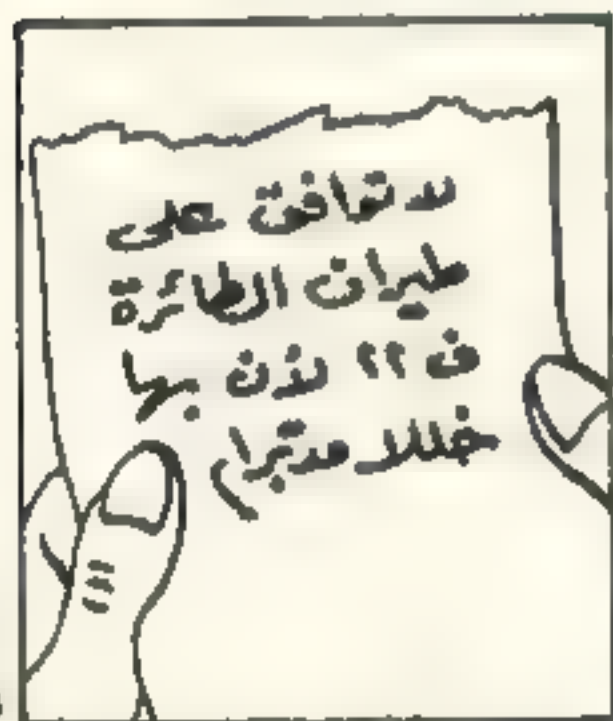 لا توافق على
طيران الطائرة
ف ٢٢ لأن بها
خللا مدبرا